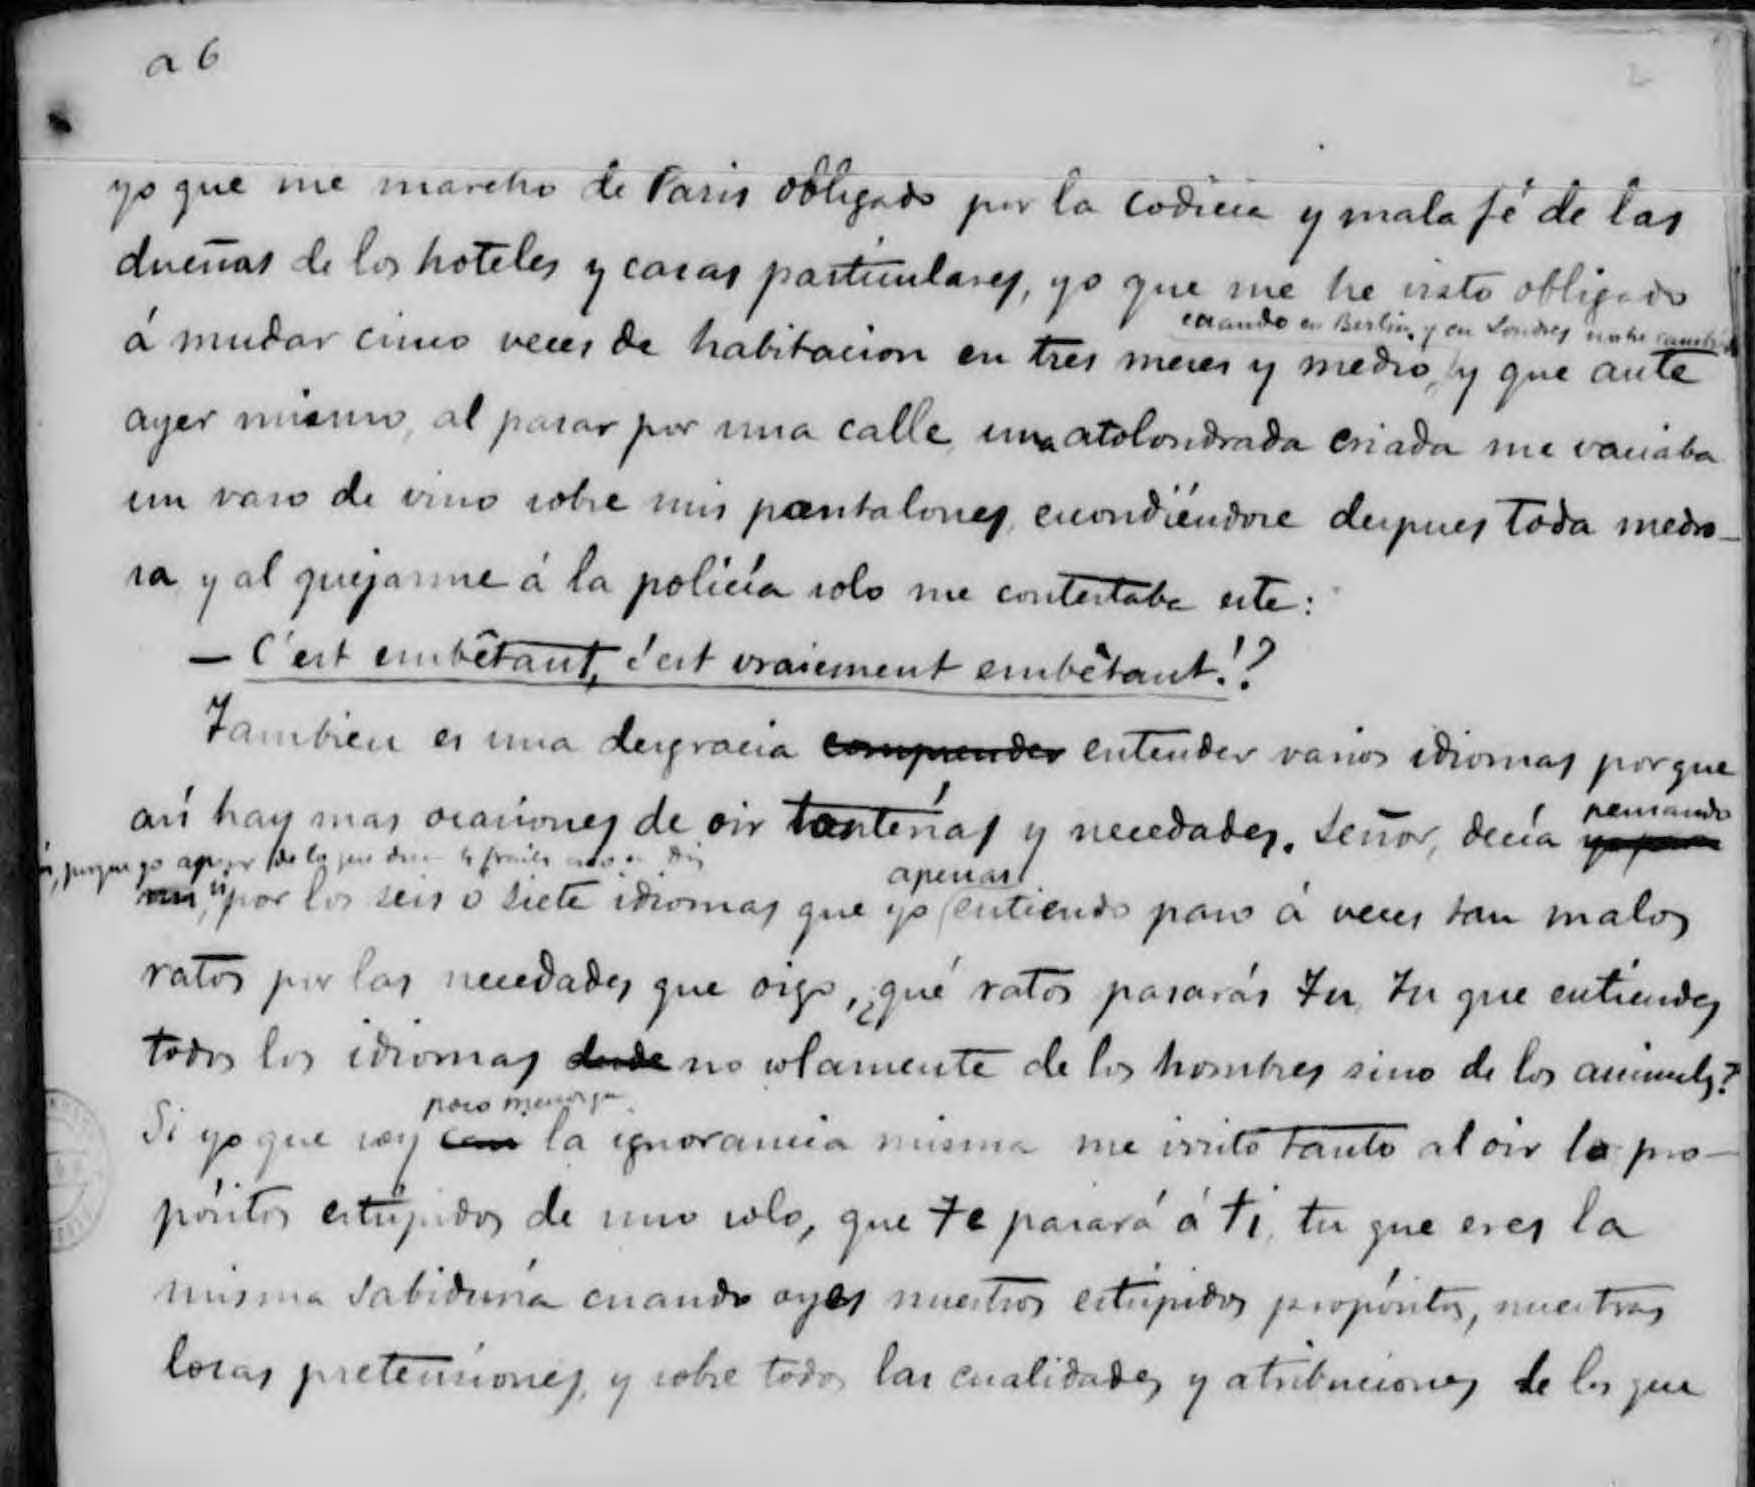 a 6
yo que me marcho de Paris obligado por la codicia y mala fé de las
dueñas de los hoteles y casas particulares, yo que me he visto obligado
cuando en Berlin y en Londres no he cambiado
á mudar cinco veces de habitacion en tres meses y medio, y que ante
ayer mismo, al pasar por una calle, una atolondrada criada me vaciaba
un vaso de vino sobre mis pantalones, escondiéndose despues toda medro-
sa y al quejarme á la policía solo me contestaba este:
— C'est embêtant, c'est vraiement embêtant!?
Tambien es una desgracia comprender entender varios idiomas porque
así hay mas ocasiones de oir tonterías y necedades. Señor, decía
pensando
porque yo apesar de lo que dicen los frailes creo en Dios
si por los seis o siete idiomas que yo entiendo paso á veces tan malos
apenas
ratos por las necedades que oigo, ¿qué ratos pasarás Tu, Tu que entiendes
todos los idiomas desde no solamente de los hombres sino de los animales?
poco menos que
Si yo que soy casi la ignorancia misma me irrito tanto al oir los pro-
pósitos estúpidos de uno solo, que te pasará á ti, tu que eres la
misma Sabiduría cuando oyes nuestros estúpidos propósitos, nuestras
locas pretensiones, y sobre todo las cualidades y atribuciones de los que